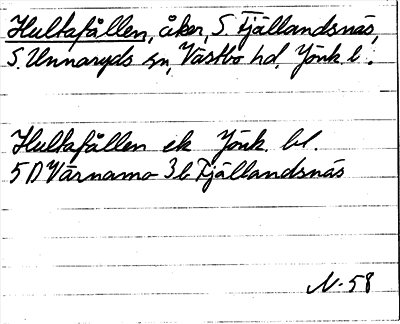 Hultafållen, åker, S. Fjällandsnäs,
S. Unnaryds sn, Västbo hd, Jönk l.
Hultafållen ek Jönk. bl.
5 D Värnamo 3 b Fjällandsnäs
N-58